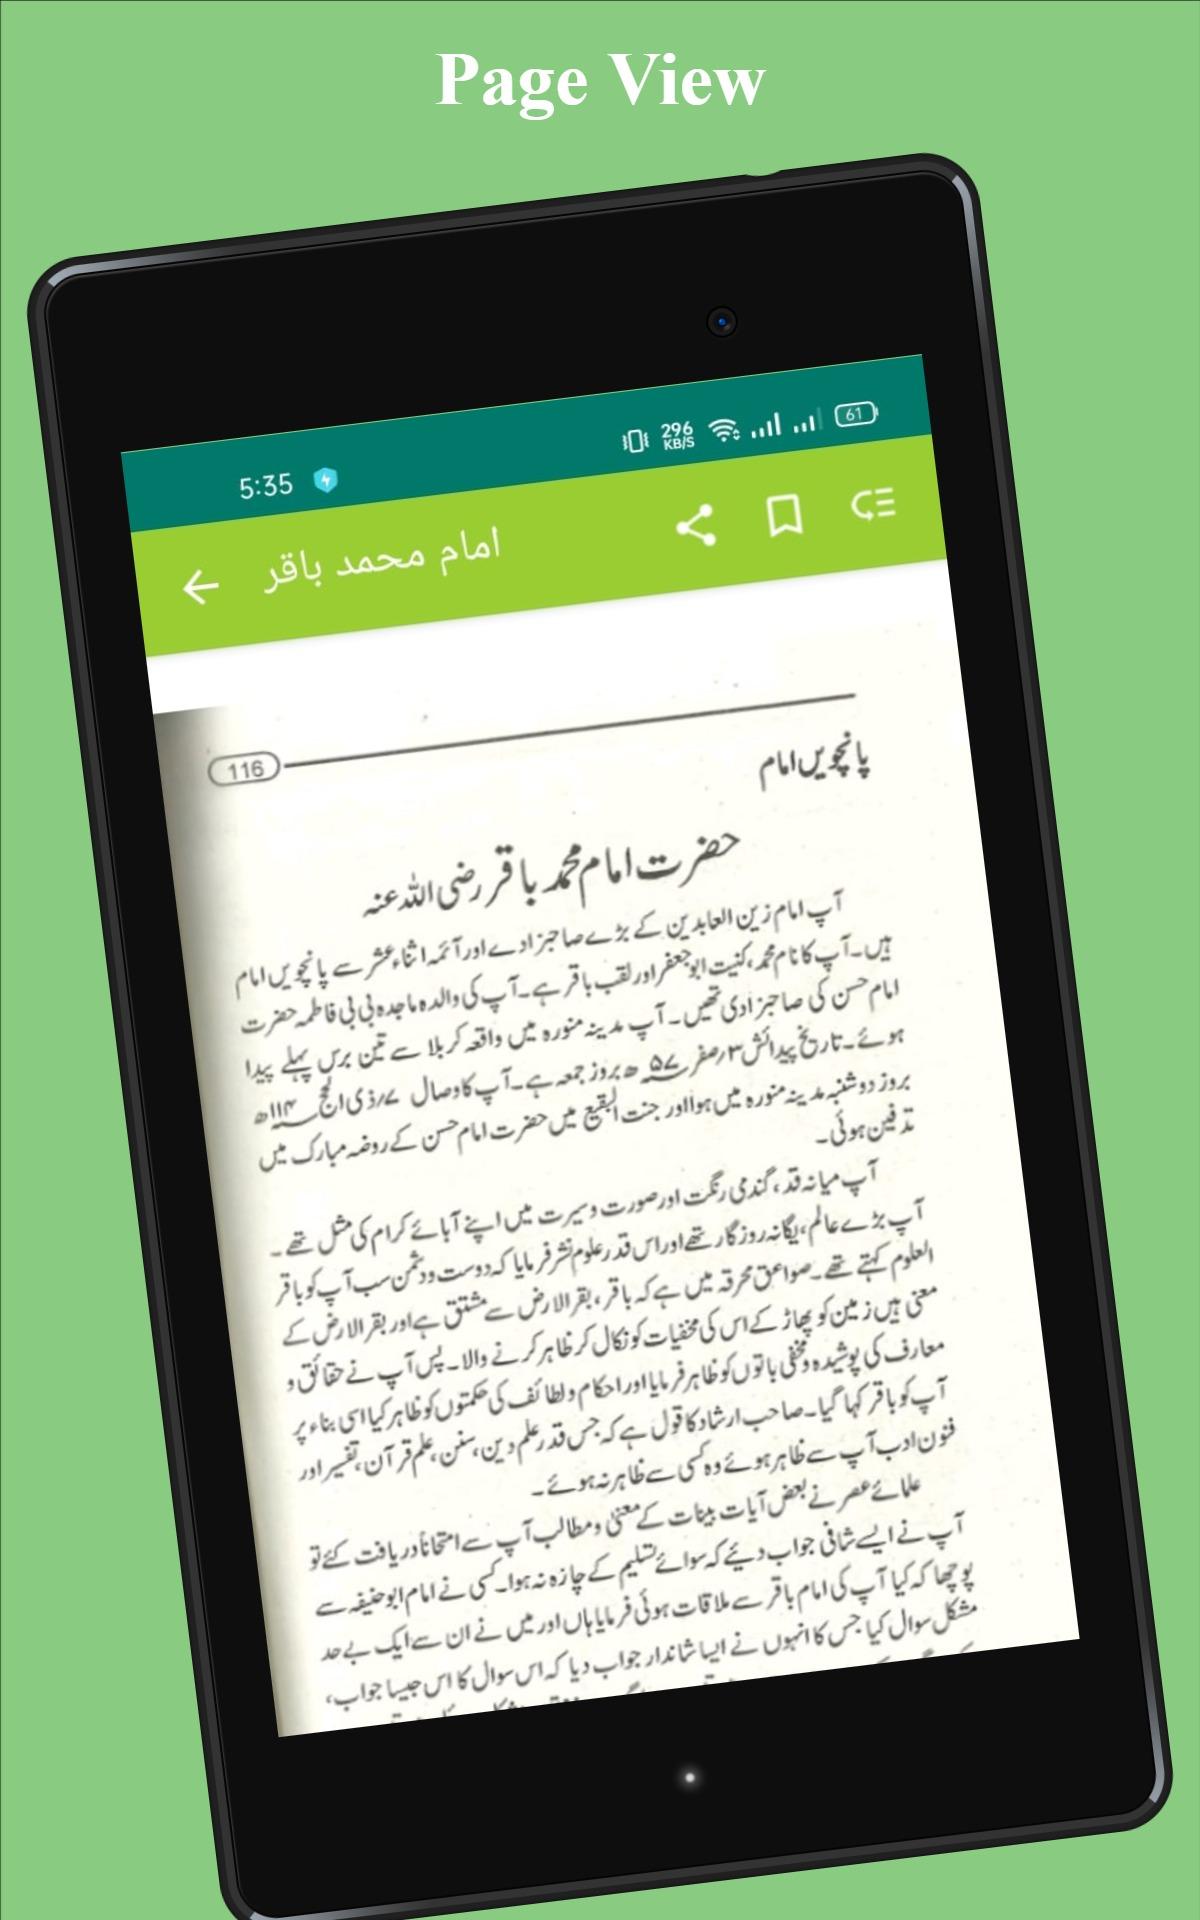 Page View
5:35
296
KB/S
61
امام محمد باقر
116
پانچویں امام
حضرت امام محمد باقر رضی اللہ عنہ
آپ امام زین العابدین کے بڑے صاحبزادے اور آئمہ اثناء عشر سے پانچویں امام
ہیں۔ آپ کا نام محمد، کنیت ابو جعفر اور لقب باقر ہے۔ آپ کی والدہ ماجدہ بی بی فاطمہ حضرت
امام حسن کی صاحبزادی تھیں۔ آپ مدینہ منورہ میں واقعہ کربلا سے تین برس پہلے پیدا
ہوئے۔ تاریخ پیدائش ۳؍صفر ۵۷ھ بروز جمعہ ہے۔ آپ کا وصال ۷؍ذی الحج ۱۱۴ھ
بروز دوشنبہ مدینہ منورہ میں ہوا اور جنت البقیع میں حضرت امام حسن کے روضہ مبارک میں
تدفین ہوئی۔
آپ میانہ قد، گندمی رنگت اور صورت و سیرت میں اپنے آبائے کرام کی مثل تھے۔
آپ بڑے عالم، یگانہ روزگار تھے اور اس قدر علوم نشر فرمایا کہ دوست و دشمن سب آپ کو باقر
العلوم کہتے تھے۔ صواعق محرقہ میں ہے کہ باقر، بقر الارض سے مشتق ہے اور بقر الارض کے
معنی ہیں زمین کو پھاڑ کے اس کی مخفیات کو نکال کر ظاہر کرنے والا۔ پس آپ نے حقائق و
معارف کی پوشیدہ و مخفی باتوں کو ظاہر فرمایا اور احکام و لطائف کی حکمتوں کو ظاہر کیا اسی بناء پر
آپ کو باقر کہا گیا۔ صاحب ارشاد کا قول ہے کہ جس قدر علم دین، سنن، علم قرآن، تفسیر اور
فنون ادب آپ سے ظاہر ہوئے وہ کسی سے ظاہر نہ ہوئے۔
علمائے عصر نے بعض آیات بینات کے معنیٰ و مطالب آپ سے امتحاناً دریافت کئے تو
آپ نے ایسے شافی جواب دیئے کہ سوائے تسلیم کے چارہ نہ ہوا۔ کسی نے امام ابو حنیفہ سے
پوچھا کہ کیا آپ کی امام باقر سے ملاقات ہوئی فرمایا ہاں اور میں نے ان سے ایک بے حد
مشکل سوال کیا جس کا انہوں نے ایسا شاندار جواب دیا کہ اس سوال کا اس جیسا جواب،